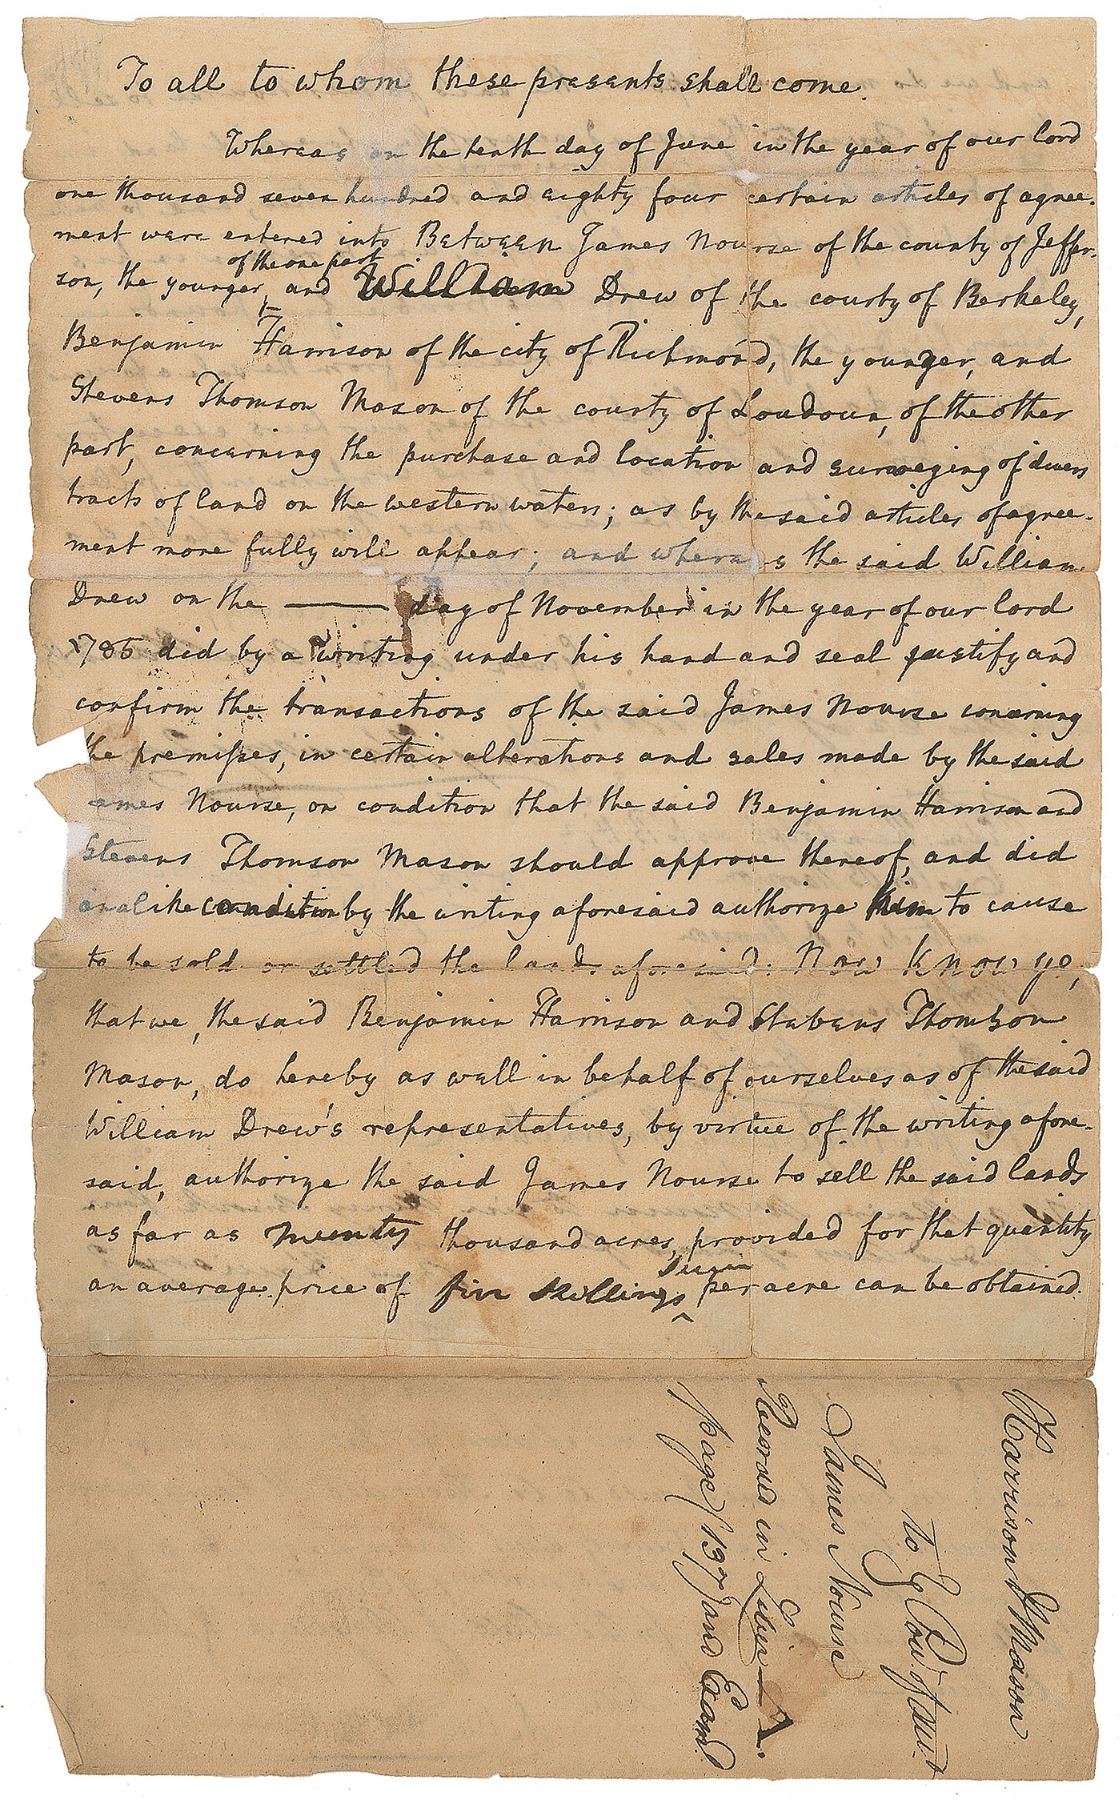 To all to whom these presents shall come.
Whereas on the tenth day of June in the year of our lord
one thousand seven hundred and eighty four certain articles of agree-
ment were entered into Between James Nourse of the county of Jeffer-
of the one part
son, the younger, and William Drew of the county of Berkeley,
Benjamin Harrison of the city of Richmond, the younger, and
Stevens Thomson Mason of the county of Loudoun, of the other
part, concerning the purchase and location and surveying of divers
tracts of land on the western waters; as by the said articles of agree-
ment more fully will appear; and whereas the said William
Drew on the —— day of November in the year of our lord
1786 did by a writing under his hand and seal justify and
confirm the transactions of the said James Nourse concerning
the premisses, in certain alterations and sales made by the said
ames Nourse, on condition that the said Benjamin Harrison and
Stevens Thomson Mason should approve thereof, and did
on a like condition by the writing aforesaid authorize him to cause
to be sold or settled the lands aforesaid: Now Know ye,
that we, the said Benjamin Harrison and Stevens Thomson
Mason, do hereby as well in behalf of ourselves as of the said
William Drew's representatives, by virtue of the writing afore-
said, authorize the said James Nourse to sell the said lands
as far as twenty thousand acres, provided for that quantity
an average price of five shillings per acre can be obtained.
Harrison & Mason
to } Pow. of Att.
James Nourse
Record in Liber A.
page (137) and Exam.d